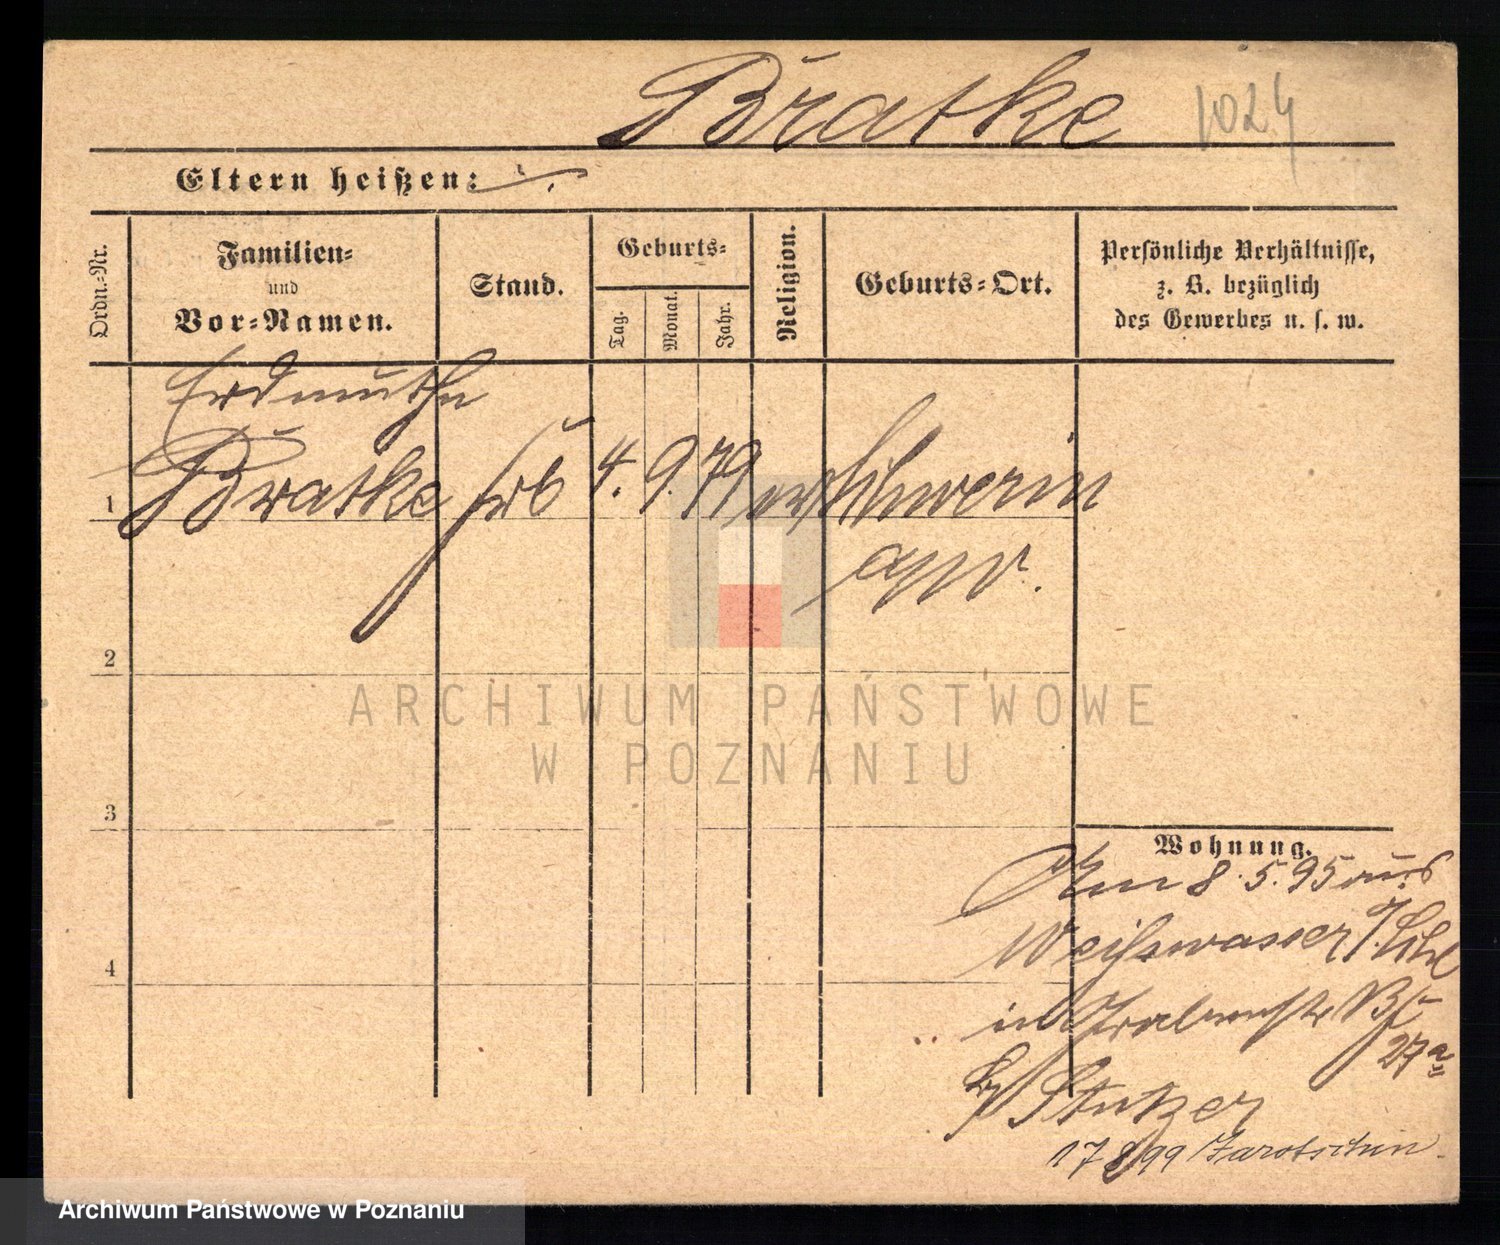 Bratke 1024
Eltern heißen:
Ordn.-Nr.
Familien-
und
Vor-Namen.
Stand.
Geburts-
Tag.
Monat.
Jahr.
Religion.
Geburts-Ort.
Persönliche Verhältnisse,
z. B. bezüglich
des Gewerbes u. s. w.
Erdmuthe
1 Bratke 4. 9. 79 Schwerin
2
ARCHIWUM PAŃSTWOWE
W POZNANIU
3
Wohnung.
Am 8.5.95 aus
Weißwasser
4
in
27a
Stutzer
17 8 99 Jarotschin
Archiwum Państwowe w Poznaniu